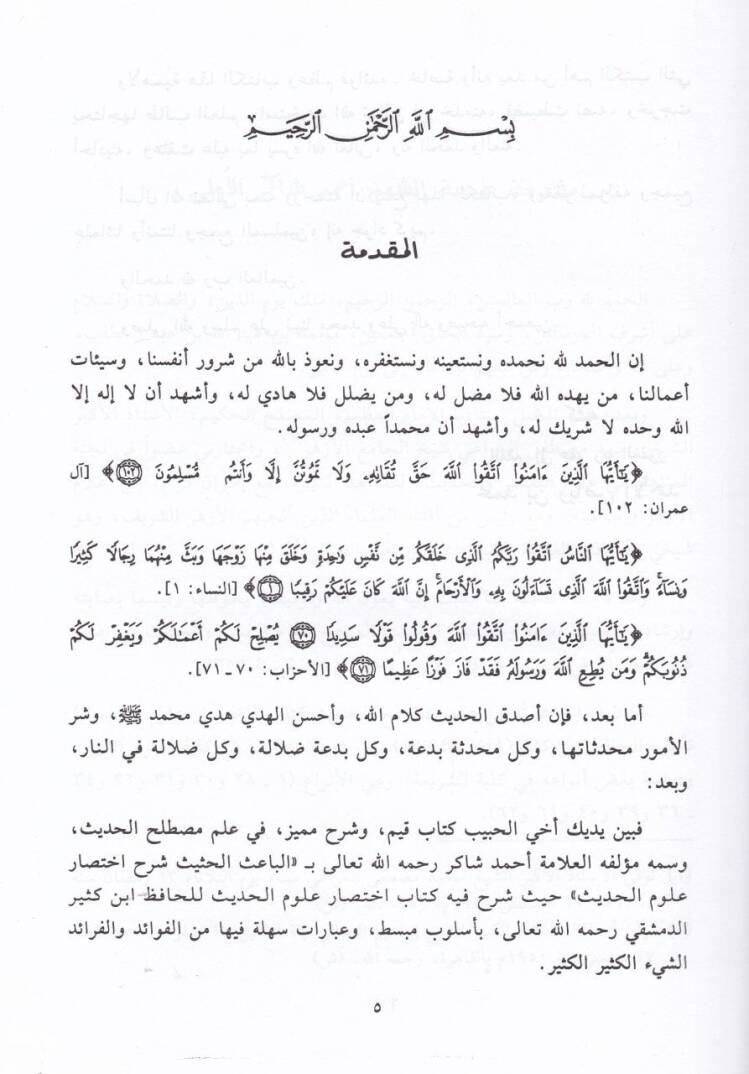 بِسْمِ اللَّهِ الرَّحْمَٰنِ الرَّحِيمِ
المقدمة
إن الحمد لله نحمده ونستعينه ونستغفره، ونعوذ بالله من شرور أنفسنا، وسيئات
أعمالنا، من يهده الله فلا مضل له، ومن يضلل فلا هادي له، وأشهد أن لا إله إلا
الله وحده لا شريك له، وأشهد أن محمداً عبده ورسوله.
﴿يَٰٓأَيُّهَا ٱلَّذِينَ ءَامَنُوا۟ ٱتَّقُوا۟ ٱللَّهَ حَقَّ تُقَاتِهِۦ وَلَا تَمُوتُنَّ إِلَّا وَأَنتُم مُّسْلِمُونَ ١٠٢﴾ [آل
عمران: ١٠٢].
﴿يَٰٓأَيُّهَا ٱلنَّاسُ ٱتَّقُوا۟ رَبَّكُمُ ٱلَّذِى خَلَقَكُم مِّن نَّفْسٍ وَٰحِدَةٍ وَخَلَقَ مِنْهَا زَوْجَهَا وَبَثَّ مِنْهُمَا رِجَالًا كَثِيرًا
وَنِسَآءً وَٱتَّقُوا۟ ٱللَّهَ ٱلَّذِى تَسَآءَلُونَ بِهِۦ وَٱلْأَرْحَامَ إِنَّ ٱللَّهَ كَانَ عَلَيْكُمْ رَقِيبًا ١﴾ [النساء: ١].
﴿يَٰٓأَيُّهَا ٱلَّذِينَ ءَامَنُوا۟ ٱتَّقُوا۟ ٱللَّهَ وَقُولُوا۟ قَوْلًا سَدِيدًا ٧٠ يُصْلِحْ لَكُمْ أَعْمَٰلَكُمْ وَيَغْفِرْ لَكُمْ
ذُنُوبَكُمْ وَمَن يُطِعِ ٱللَّهَ وَرَسُولَهُۥ فَقَدْ فَازَ فَوْزًا عَظِيمًا ٧١﴾ [الأحزاب: ٧٠ ـ ٧١].
أما بعد، فإن أصدق الحديث كلام الله، وأحسن الهدي هدي محمد ﷺ، وشر
الأمور محدثاتها، وكل محدثة بدعة، وكل بدعة ضلالة، وكل ضلالة في النار،
وبعد:
فبين يديك أخي الحبيب كتاب قيم، وشرح مميز، في علم مصطلح الحديث،
وسمه مؤلفه العلامة أحمد شاكر رحمه الله تعالى بـ «الباعث الحثيث شرح اختصار
علوم الحديث» حيث شرح فيه كتاب اختصار علوم الحديث للحافظ ابن كثير
الدمشقي رحمه الله تعالى، بأسلوب مبسط، وعبارات سهلة فيها من الفوائد والفرائد
الشيء الكثير الكثير.
٥